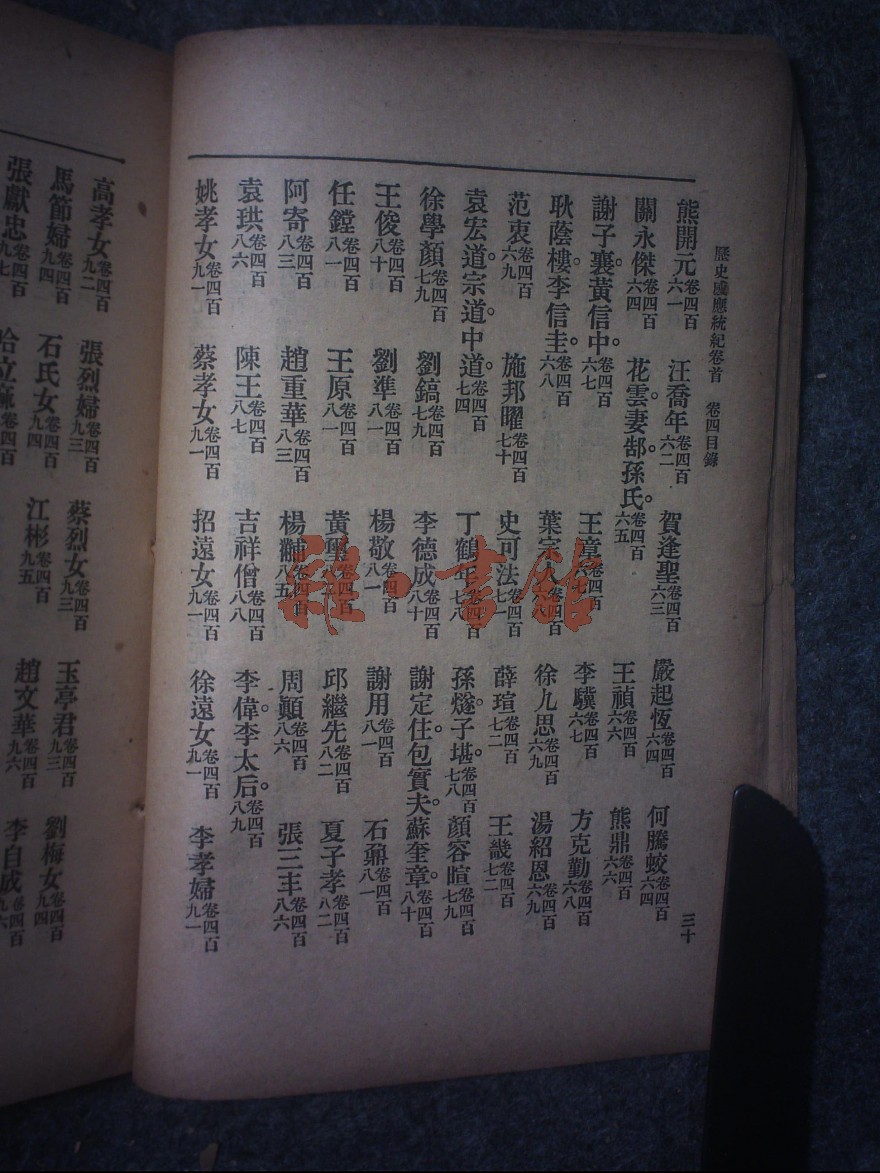 歷史感應統紀卷首　卷四目錄　三十
熊開元卷四百六一　汪喬年卷四百六二　賀逢聖卷四百六三　嚴起恆卷四百六四　何騰蛟卷四百六四
關永傑卷四百六四　花雲妻郜。孫氏。卷四百六五　王禎卷四百六六　熊鼎卷四百六六
謝子襄。黃信中。卷四百六七　王章卷四百六七　李驥卷四百六七　方克勤卷四百六八
耿蔭樓。李信圭。卷四百六八　葉宗人卷四百六　徐九思卷四百六九　湯紹恩卷四百六九
范衷卷四百六九　施邦曜卷四百七十　史可法卷四百七一　薛瑄卷四百七二　王畿卷四百七二
袁宏道。宗道。中道。卷四百七四　丁鶴年卷四百七八　孫燧。子堪。卷四百七八　顏容暄卷四百七九
徐學顏卷四百七九　劉鎬卷四百七九　李德成卷四百八十　謝定住。包實夫。蘇奎章。卷四百八十
王俊卷四百八十　劉準卷四百八一　楊敬卷四百八一　謝用卷四百八一　石鼐卷四百八一
任鏜卷四百八一　王原卷四百八一　黃璽卷四百八二　邱繼先卷四百八二　夏子孝卷四百八二
阿寄卷四百八三　趙重華卷四百八三　楊黼卷四百八五　周顛卷四百八六　張三丰卷四百八六
袁珙卷四百八六　陳王卷四百八七　吉祥僧卷四百八八　李偉。李太后。卷四百八九
姚孝女卷四百九一　蔡孝女卷四百九一　招遠女卷四百九一　徐遠女卷四百九一　李孝婦卷四百九一
高孝女卷四百九二　張烈婦卷四百九三　蔡烈女卷四百九三　玉亭君卷四百九三　劉梅女卷四百九四
馬節婦卷四百九四　石氏女卷四百九四　江彬卷四百九五　趙文華卷四百九六　李自成卷四百九六
張獻忠卷四百九七　哈立麻卷四百